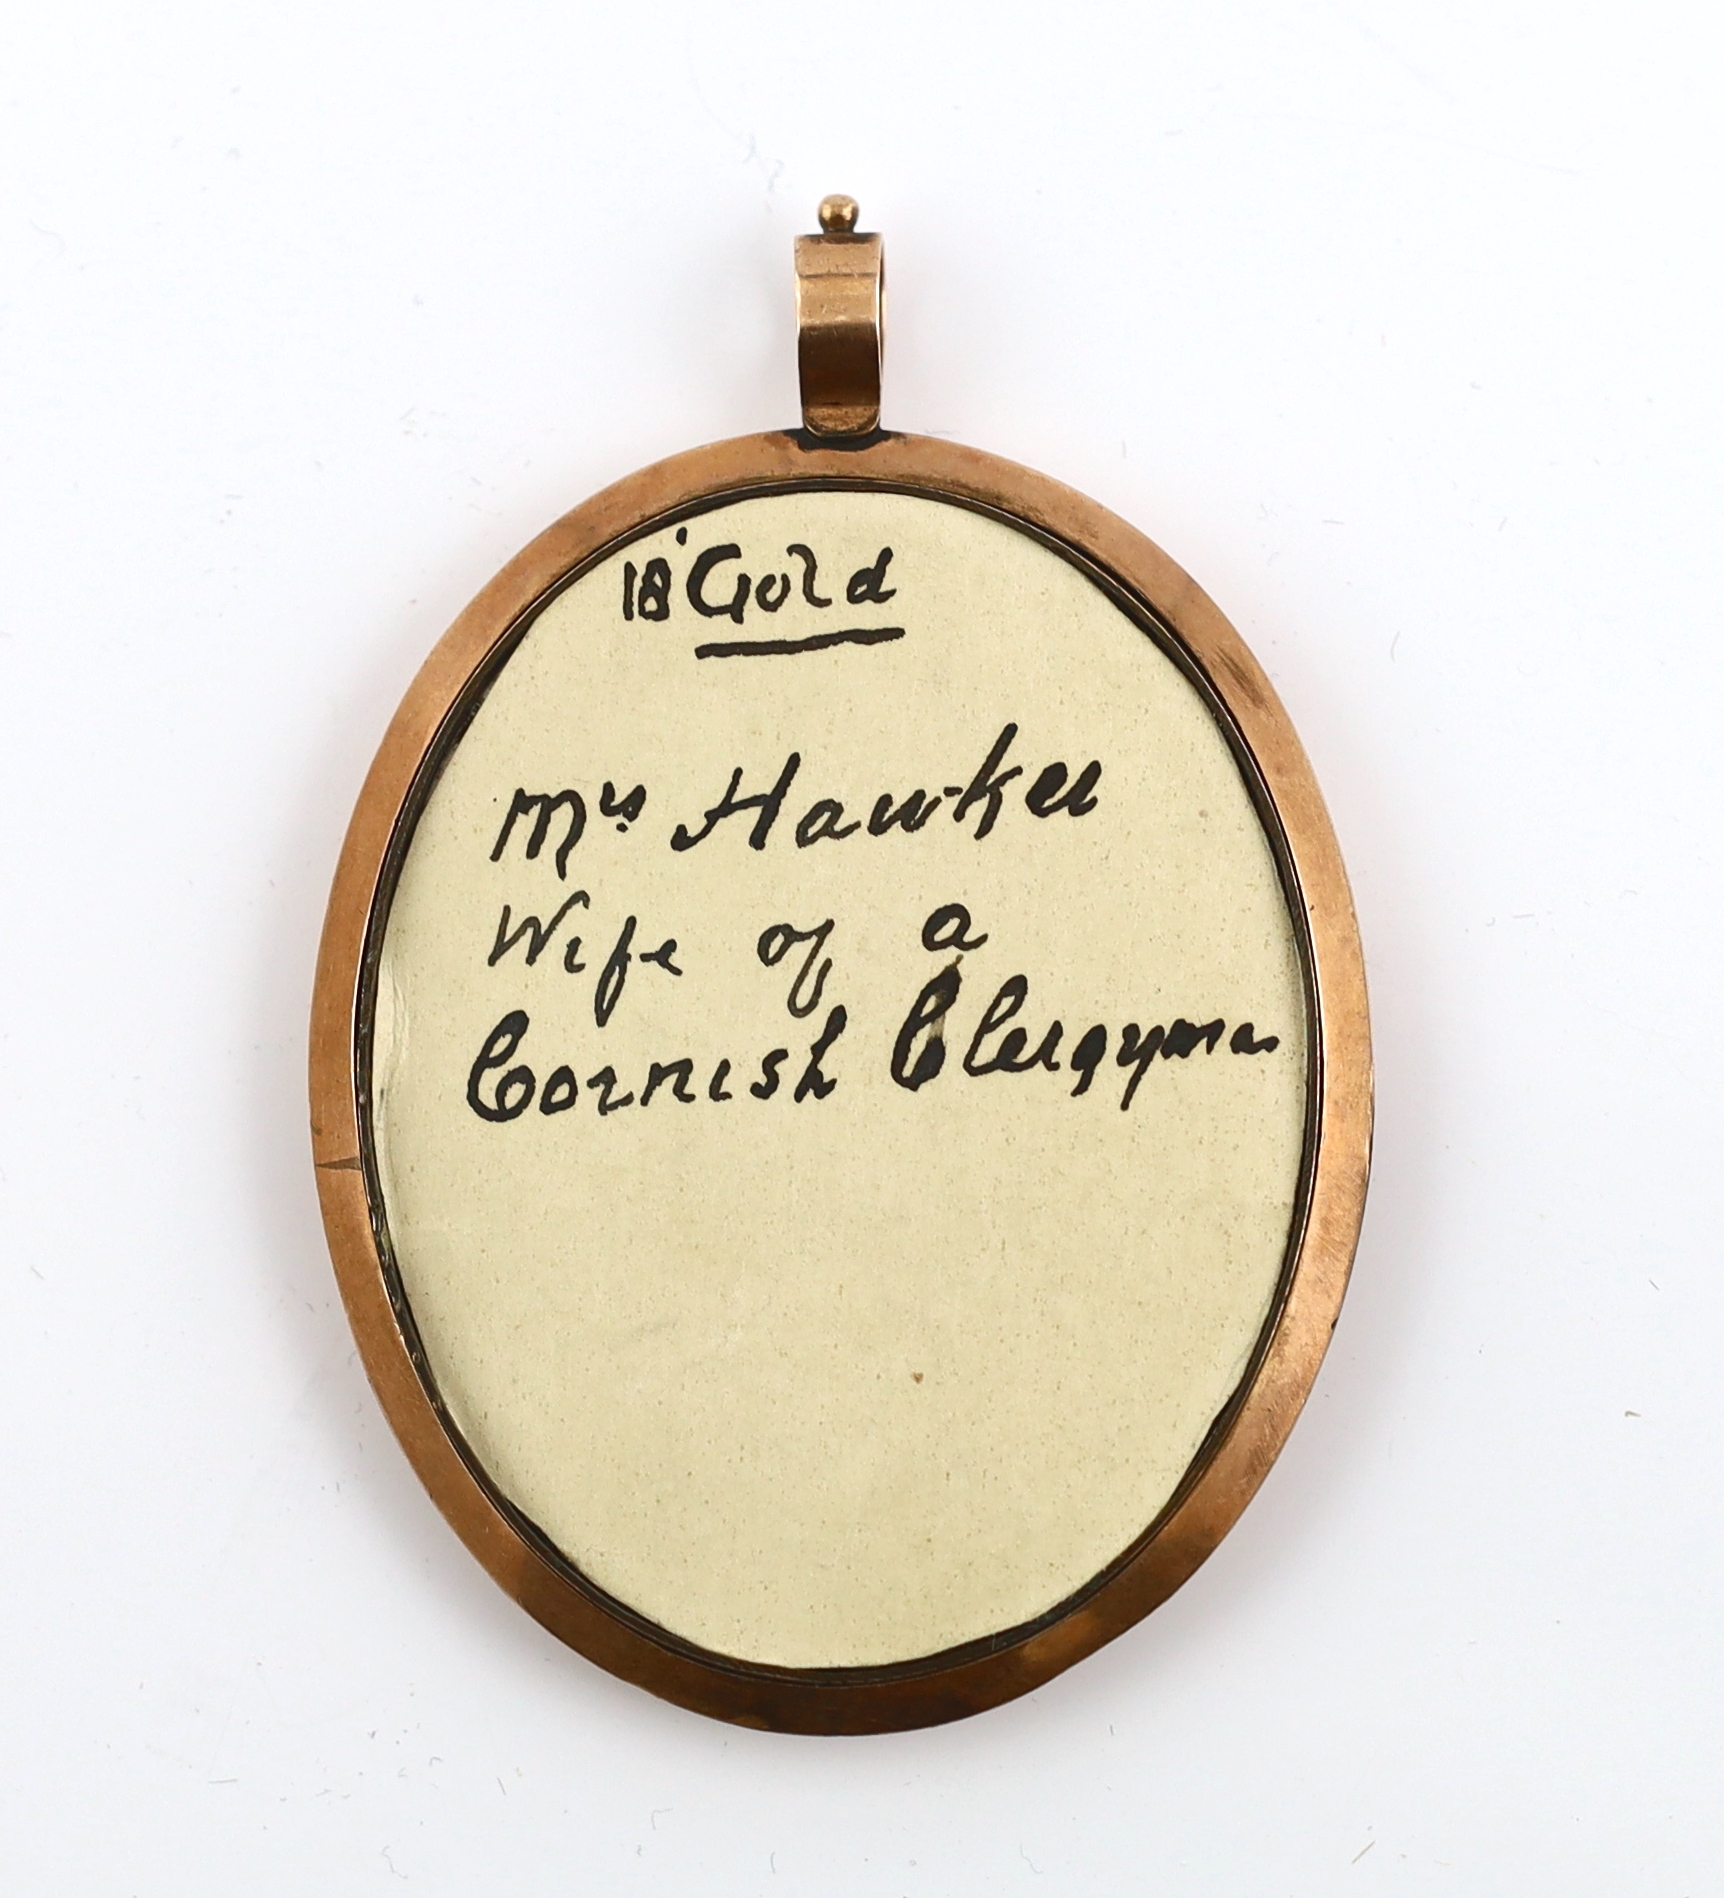 18' Gold
Mrs Hawker
Wife of a
Cornish Clergyman